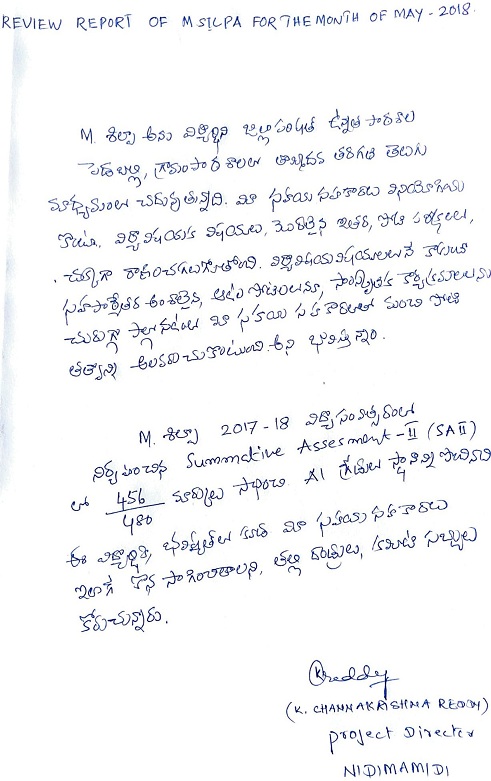 REVIEW REPORT OF M SILPA FOR THE MONTH OF MAY - 2018.
M. శిల్పా అను విద్యార్థిని జిల్లా పరిషత్ ఉన్నత పాఠశాల
పెడబల్లి, గ్రామం పాఠశాలలో తరగతి తెలుగు
మాధ్యమంలో చదువుతున్నది. మీ సహాయ సహకారాలు వినియోగించు
కొంటూ, విద్యావిషయక విషయాలు, మొదలైన ఇతర, పోటీ పరీక్షలలు,
చక్కగా రాణించగలుగుతోంది. విద్యావిషయ విషయాలలోనే కాకుండా
సహపాఠ్యేతర అంశాలైన, ఆటల పోటీలలోను, సాంస్కృతిక కార్యక్రమాలలోను
చురుగ్గా పాల్గొనడంలో మీ సహాయ సహకారాలతో మంచి పోటీ
తత్వాన్ని అలవరచుకొంటుంది. అని భావిస్తున్నాం.
M. శిల్పా 2017-18 విద్యాసంవత్సరంలో
నిర్వహించిన Summative Assesment-II (SAII)
లో 456/480 మార్కులు సాధించి A1 గ్రేడులు స్థానాన్ని పొందినది
ఈ విద్యార్థికి, భవిష్యత్‌లో కూడా మీ సహాయ సహకారాలు
ఇలాగే కొనసాగించాలని, తల్లి దండ్రులు, కమిటీ సభ్యులు
కోరుచున్నారు.
Kreddy
(K. CHANNAKRISHNA REDDY)
project Director
NIDIMAMIDI